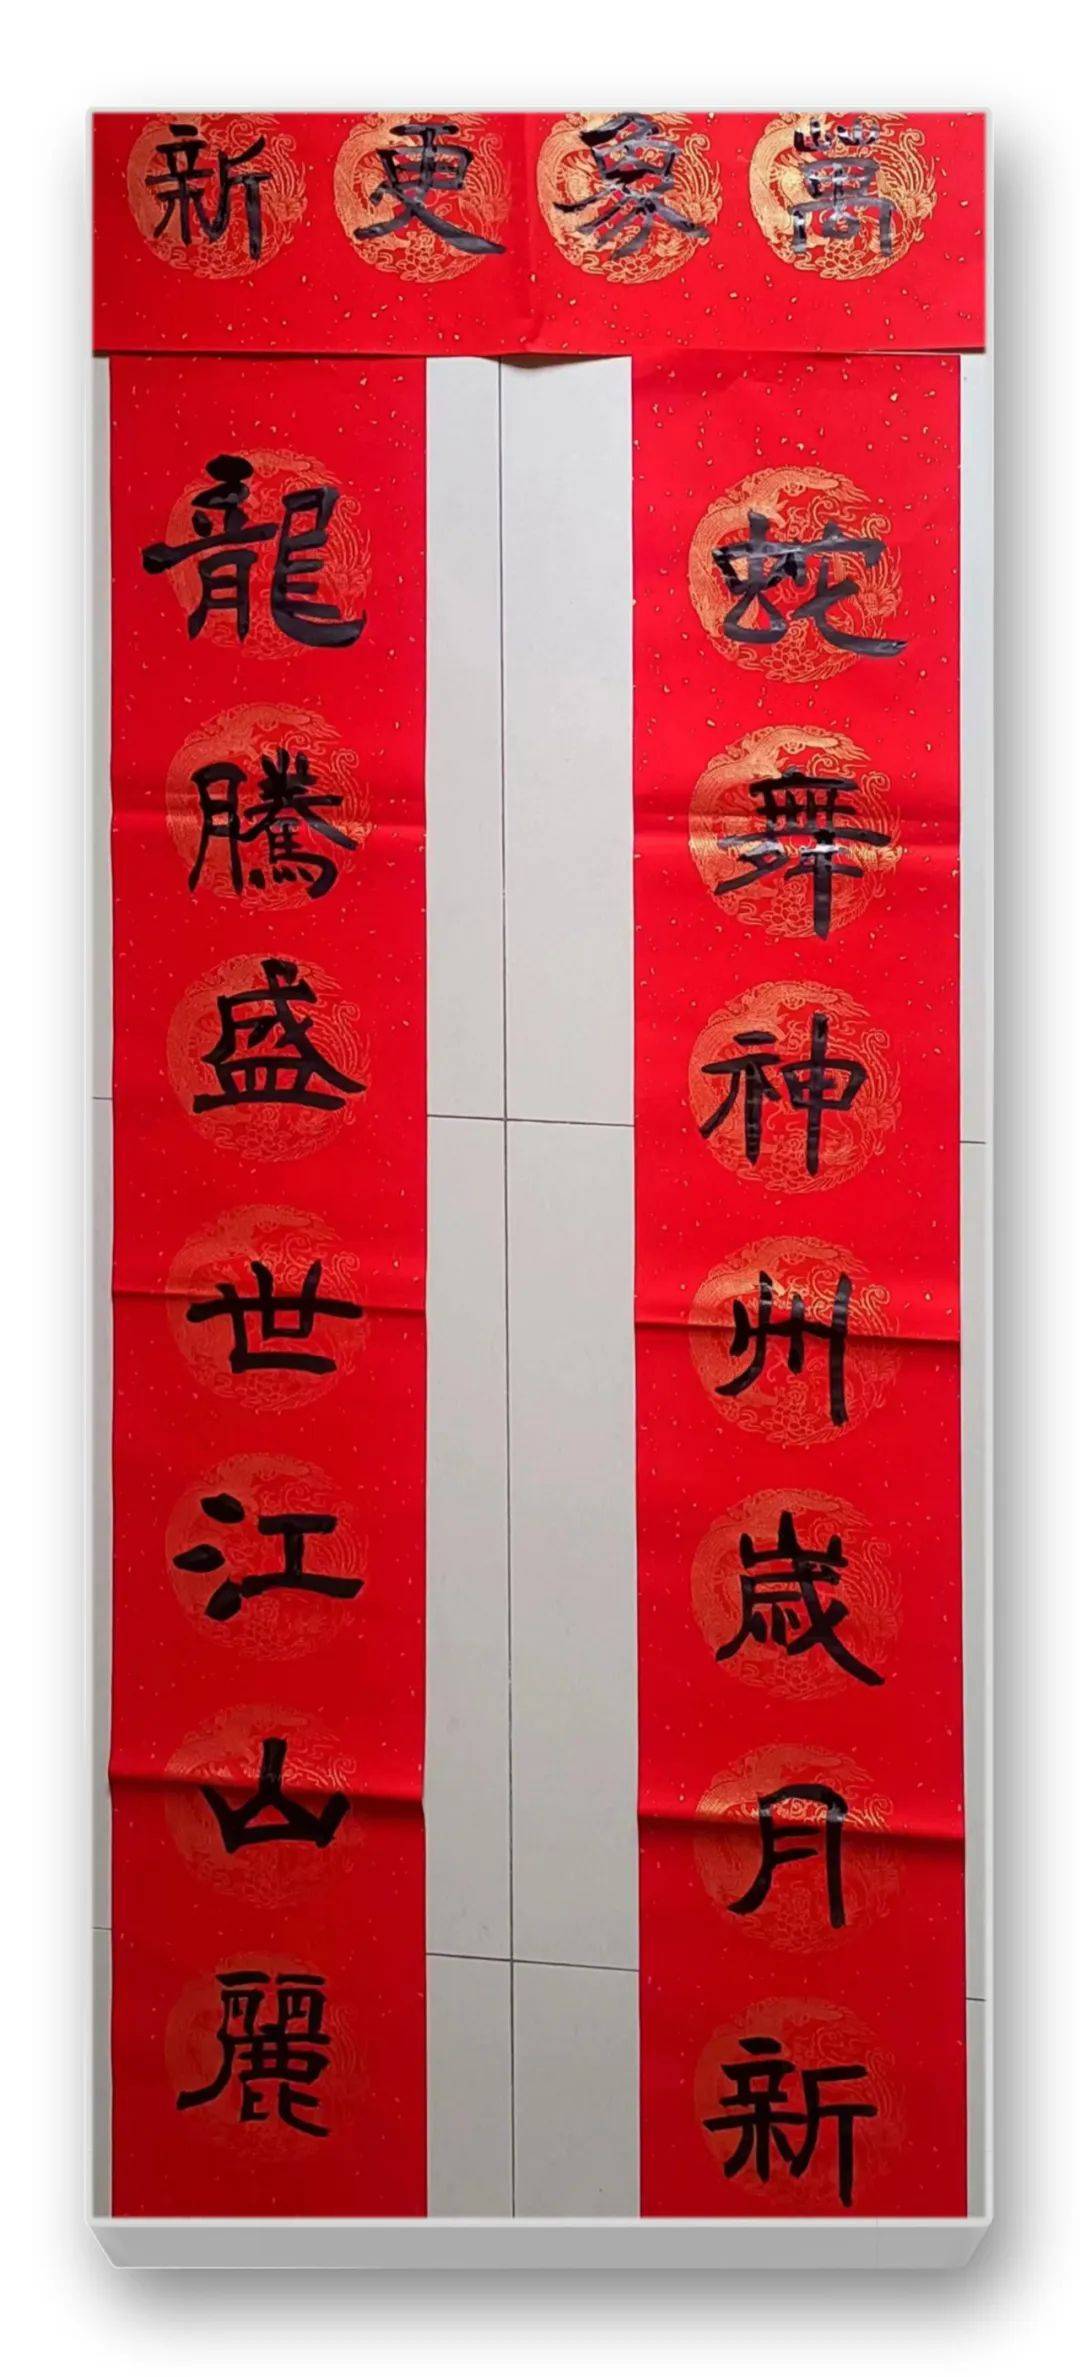 萬象更新
蛇舞神州歲月新
龍騰盛世江山麗